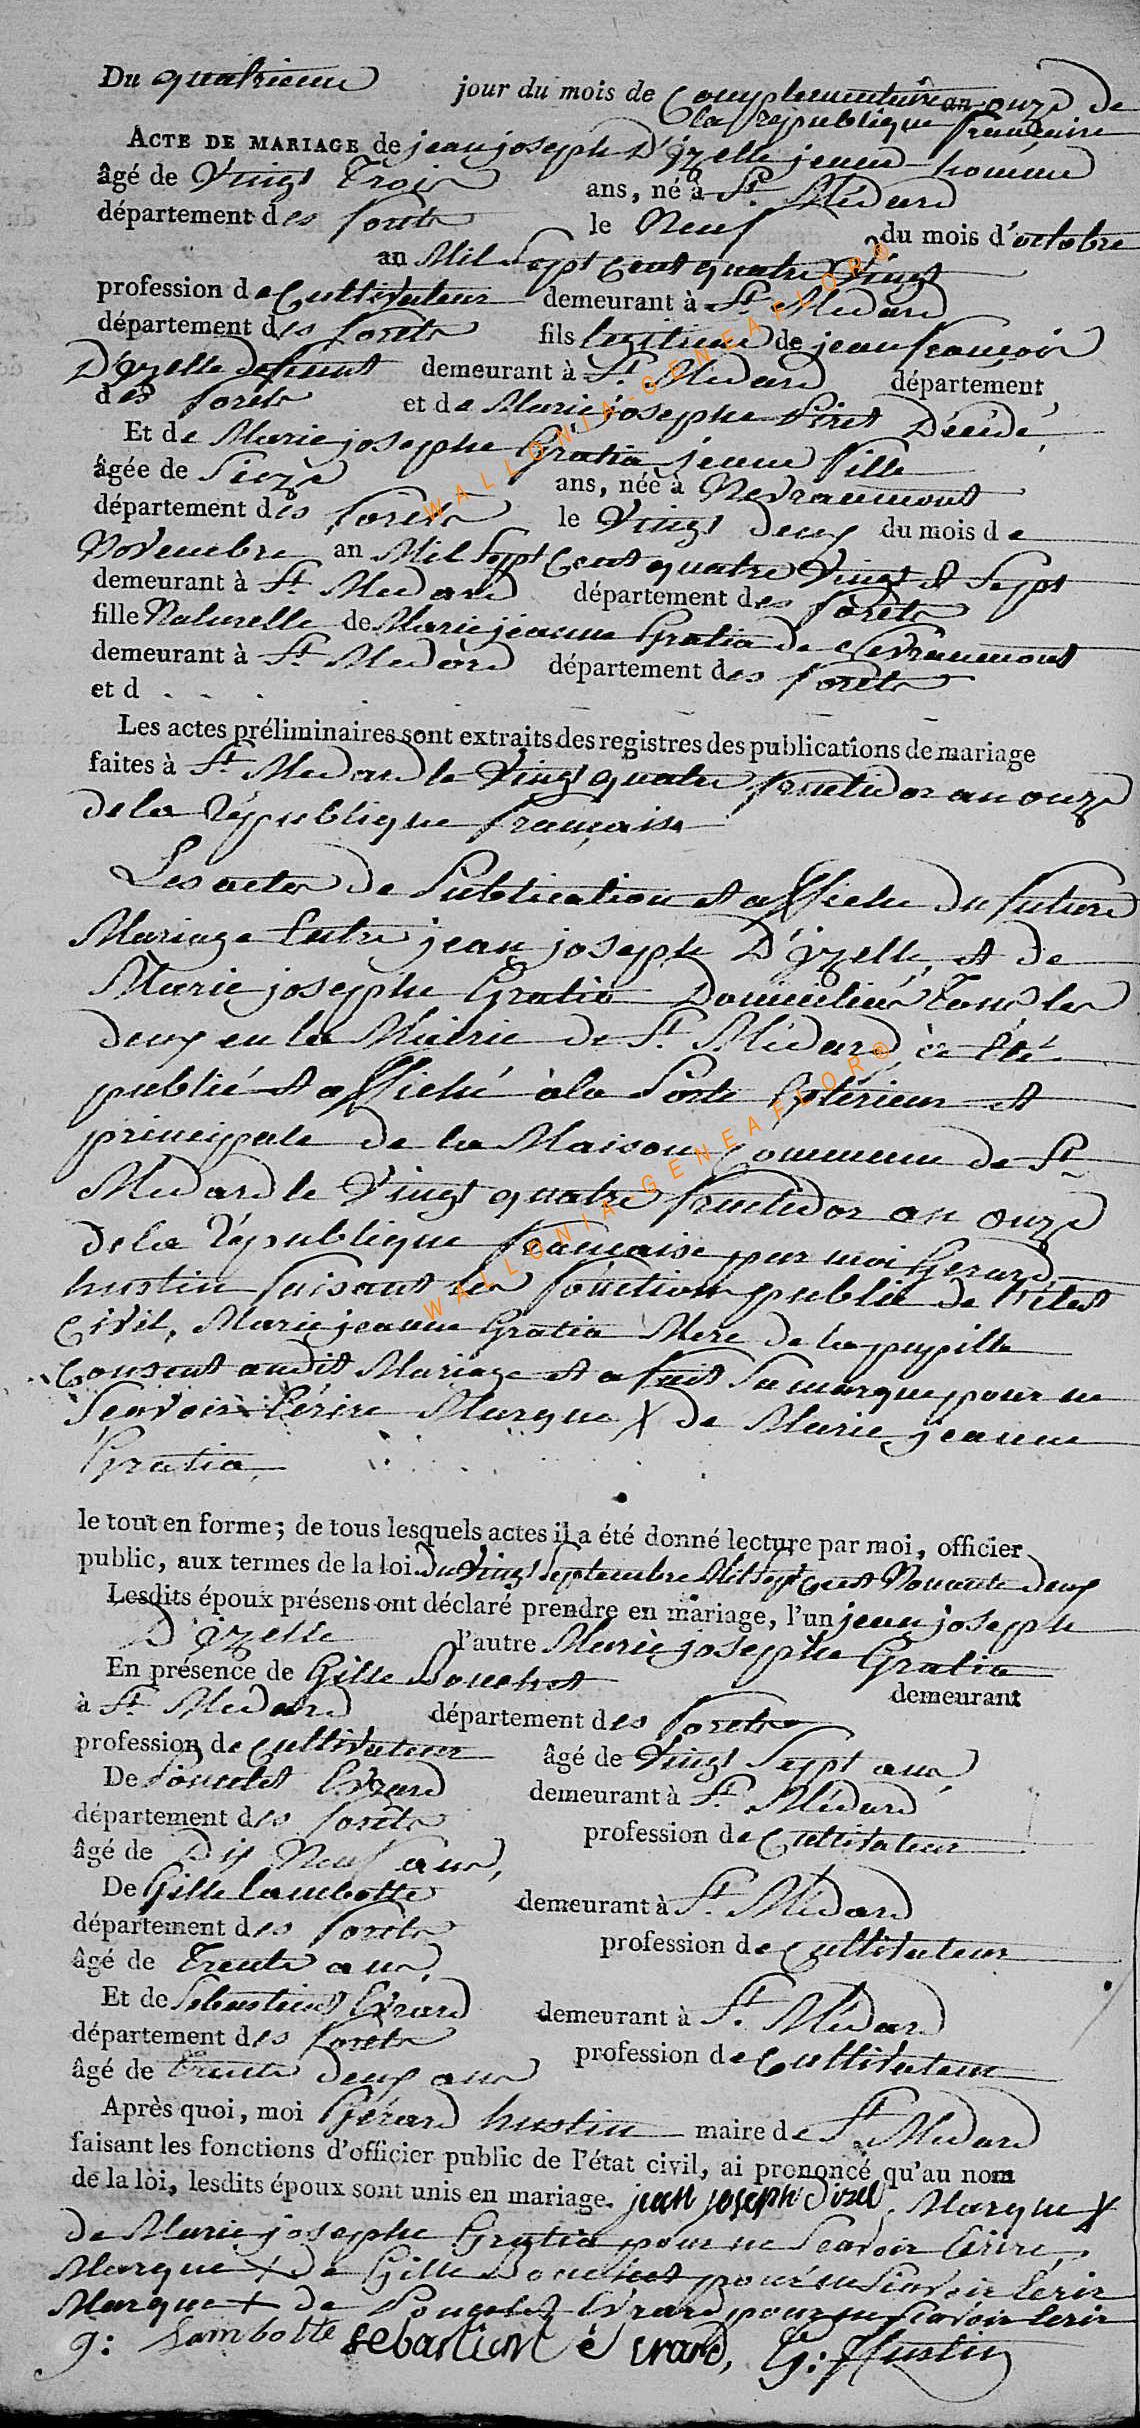 Du quatrieme jour du mois de Complementaire an onze de
la république française
ACTE DE MARIAGE de jean joseph D'izelle jeune homme
âgé de Vingt Trois ans, né à St. Médard
département des forets le Neuf du mois d'octobre
an Mil Sept Cent quatre Vingt
profession de Cultivateur demeurant à St. Medard
département des forets fils legitime de jean françois
D'izelle defunt demeurant à St. Medard département
des forets et de Marie josephe Piret Décédé,
Et de Marie josephe Gratia jeune fille
âgée de Seize ans, née à Nevraumont
département des forets le Vingt deux du mois de
Novembre an Mil Sept Cent quatre Vingt et Sept
demeurant à St. Medard département des forets
fille Naturelle de Marie jeanne Gratia de Nevraumont
demeurant à St. Medard département des forets
et d . . . .
Les actes préliminaires sont extraits des registres des publications de mariage
faites à St. Medard le Vingt quatre fructidor an onze
de la République française
Les actes de Publication et affiche du future
Mariage Entre jean joseph D'izelle, et de
Marie josephe Gratia Domiciliés Tous les
deux en la Mairie de St. Médard, à Eté
publié et affiché à la Porte Extérieur et
principale de la Maison Commune de St.
Medard le Vingt quatre fructidor an onze
de la République française par moi Gerard
hustin faisant les fonction public de l'état
Civil, Marie jeanne Gratia Mere de la pupille
Consent audit Mariage et a fait Sa marque pour ne
Scavoir Ecrire Marque X de Marie jeanne
Gratia,
le tout en forme; de tous lesquels actes il a été donné lecture par moi, officier
public, aux termes de la loi du Vingt Septembre Mil Sept Cent Nonante deux
Lesdits époux présens ont déclaré prendre en mariage, l'un jean joseph
D'izelle l'autre Marie josephe Gratia
En présence de Gille Douchot demeurant
à St. Medard département des forets
profession de Cultivateur âgé de Vingt Sept ans
De Poncelet Evrard demeurant à St. Médard
département des forets profession de Cultivateur
âgé de Dix Neuf ans,
De Gille Lambotte demeurant à St. Médard
département des forets profession de Cultivateur
âgé de Trente ans,
Et de Sebastient Evrard demeurant à St. Médard
département des forets profession de Cultivateur
âgé de Trente deux ans
Après quoi, moi Gérard hustin maire de St. Medard
faisant les fonctions d'officier public de l'état civil, ai prononcé qu'au nom
de la loi, lesdits époux sont unis en mariage. jean joseph dizel, Marque X
de Marie josephe Gratia pour ne Scavoir Ecrire,
Marque X de Gille Douchot pour ne Scavoir Ecrir
Marque + de Poncelet Evrard pour ne Scavoir Ecrir
g: Lambotte sebastient evrard, G: Hustin
WALLONIA-GENEAFLOR®
WALLONIA-GENEAFLOR®